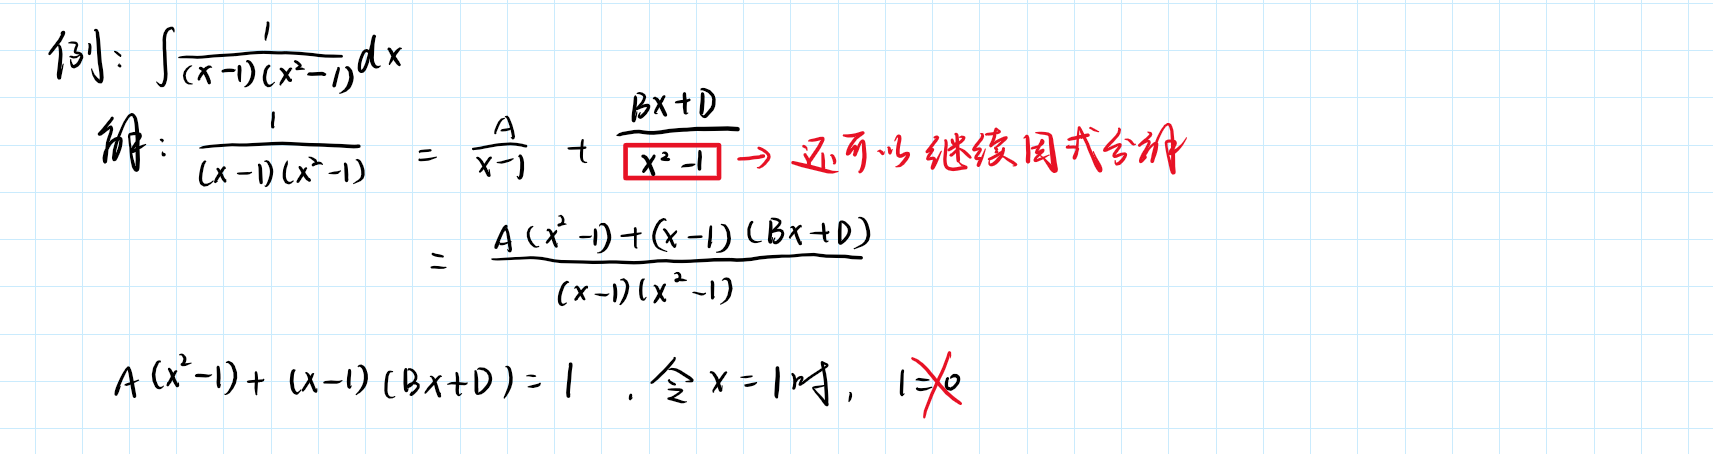 例: ∫ 1/((x-1)(x²-1)) dx
解: 1/((x-1)(x²-1)) = A/(x-1) + (Bx+D)/(x²-1) → 还可以继续因式分解
= (A(x²-1)+(x-1)(Bx+D))/((x-1)(x²-1))
A(x²-1)+(x-1)(Bx+D)=1 . 令x=1时, 1=0